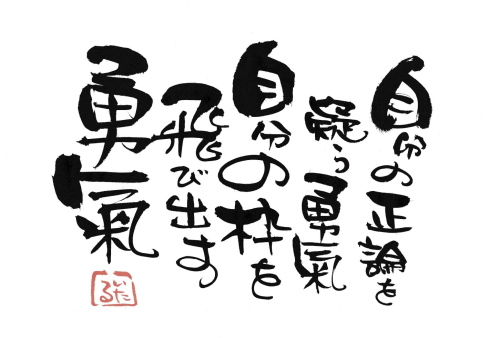 自分の正論を
疑う勇氣
自分の枠を
飛び出す
勇氣
いたる